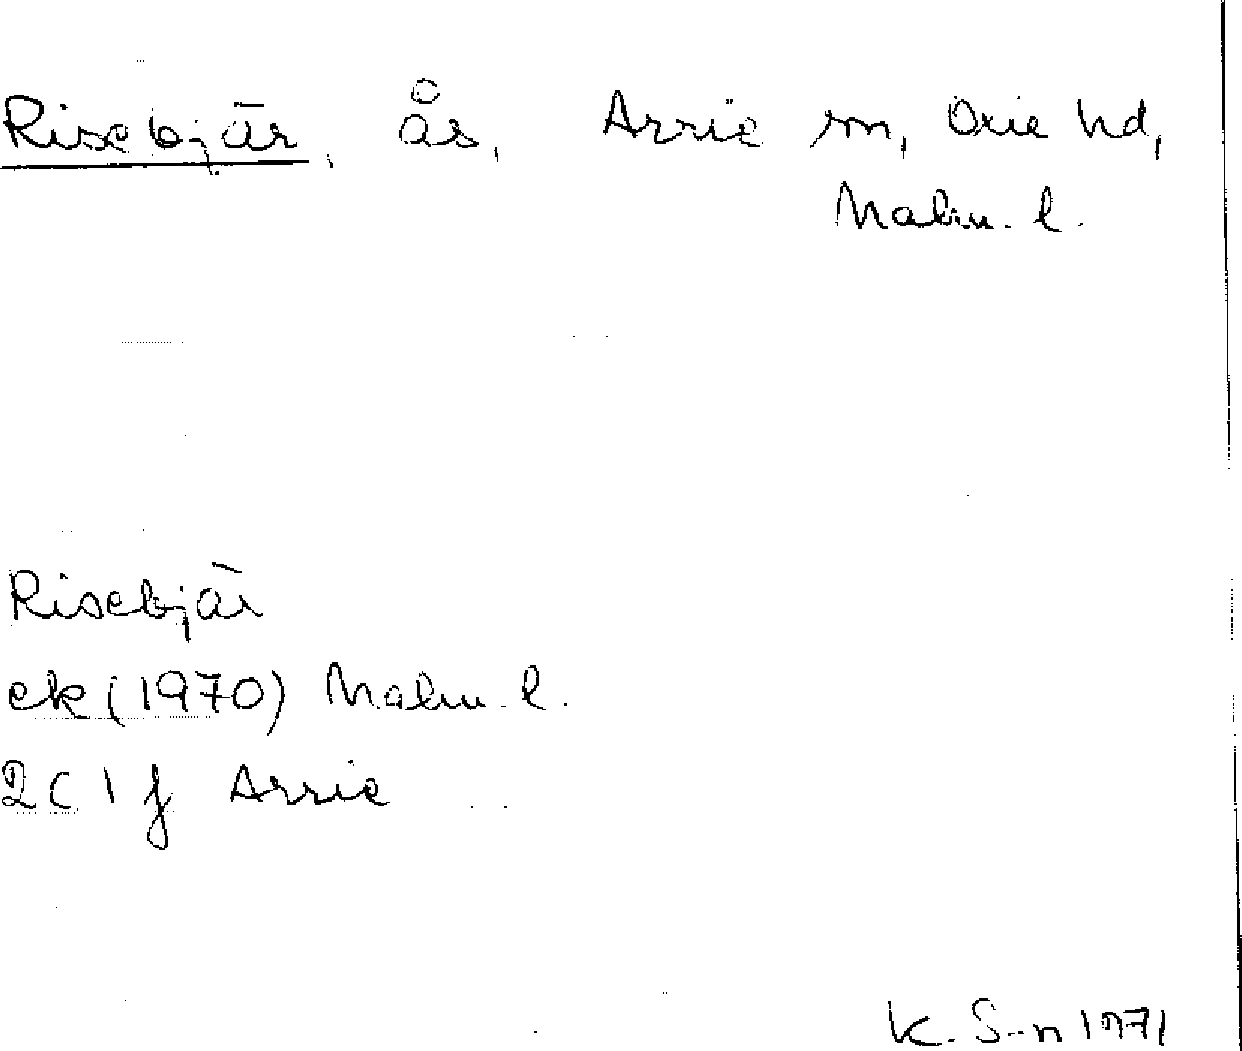 Risebjär, ås, Arrie sn, Oxie hd,
Malm. l.
Risebjär
ek (1970) Malm. l.
2C 1 f Arrie
K. S-n 1971